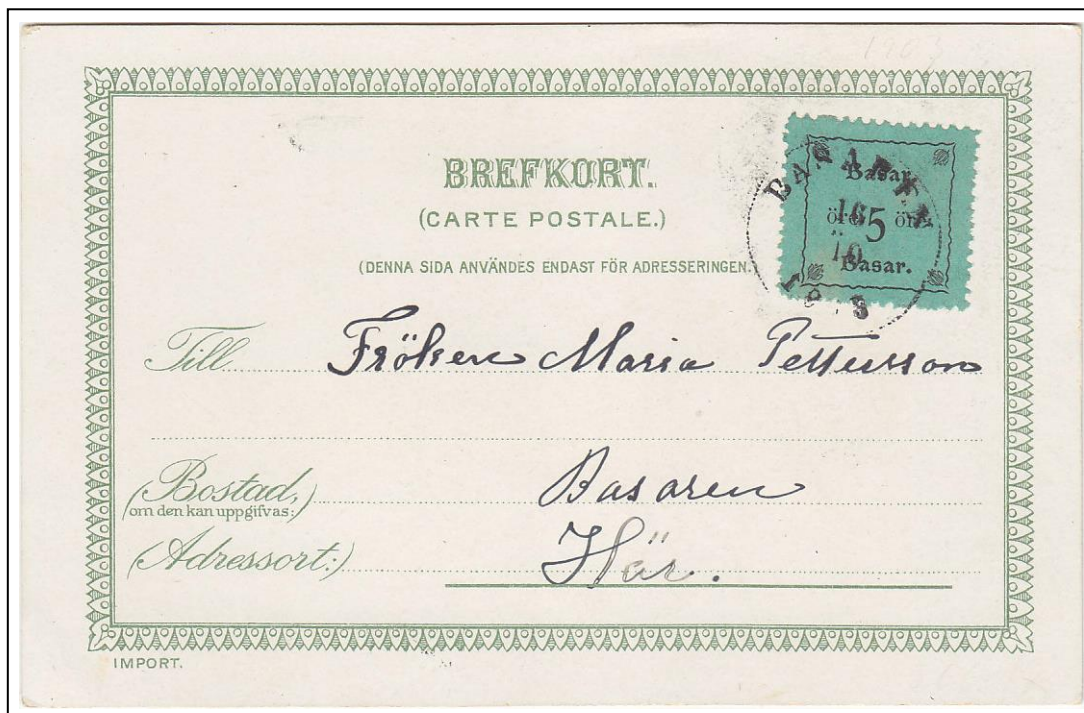 1903
BREFKORT.
(CARTE POSTALE.)
(DENNA SIDA ANVÄNDES ENDAST FÖR ADRESSERINGEN.)
Basar.
öre 5 öre
Basar.
16
10
Till Fröken Maria Pettersson
(Bostad,) Basaren
(om den kan uppgifvas:)
(Adressort:) Här.
IMPORT.